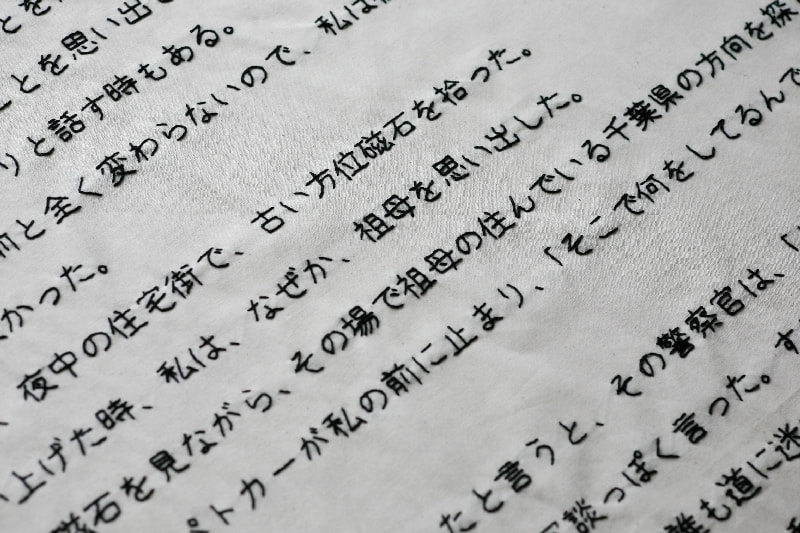 とを
ことを思い出し
りと話す時もある。
前と全く変わらないので、私は
かった。
夜中の住宅街で、古い方位磁石を拾った。
上げた時、私は、なぜか、祖母を思い出した。
磁石を見ながら、その場で祖母の住んでいる千葉県の方向を探
パトカーが私の前に止まり、「そこで何をしてるんで
たと言うと、その警察官は、「
談っぽく言った。す
誰も道に迷